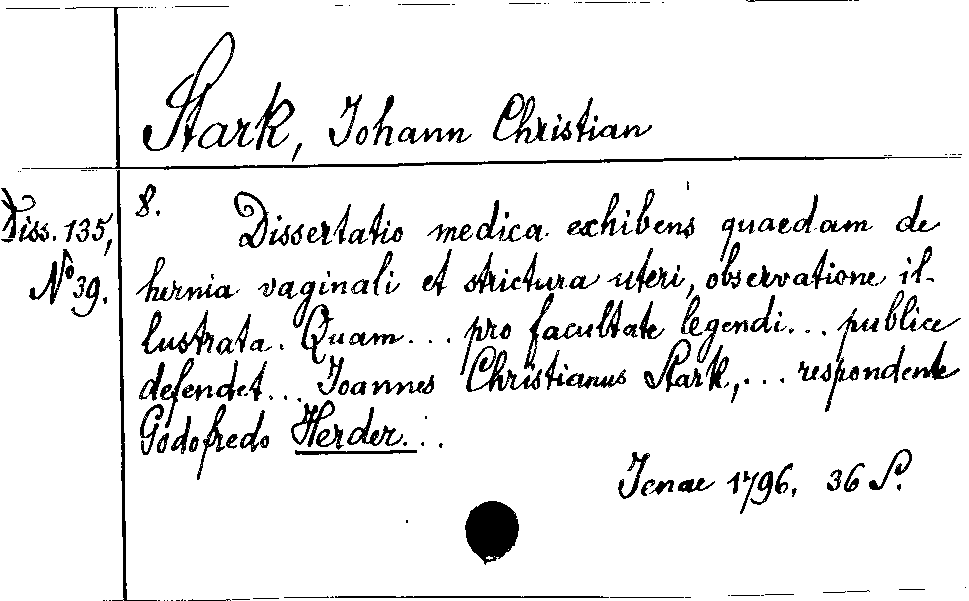 Stark, Johann Christian
Diss. 135,
No 39.
8.
Dissertatio medica exhibens quaedam de
hernia vaginali et strictura uteri, observatione il-
lustrata. Quam... pro facultate legendi... publice
defendet... Joannes Christianus Stark,... respondente
Godofredo Herder...
Jenae 1796. 36 S.